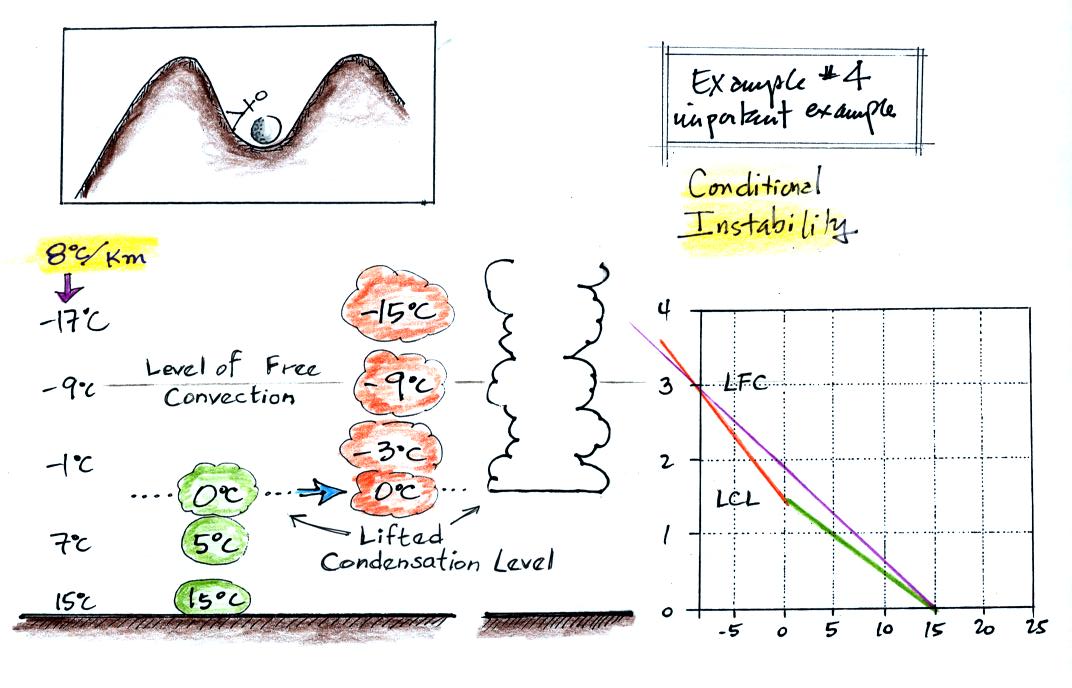 Example #4
important example
Conditional
Instability
8°C/Km
-17°C
-9°C
-1°C
7°C
15°C
Level of Free
Convection
-15°C
-9°C
-3°C
0°C
0°C
5°C
15°C
Lifted
Condensation Level
4
3
2
1
0
LFC
LCL
-5 0 5 10 15 20 25